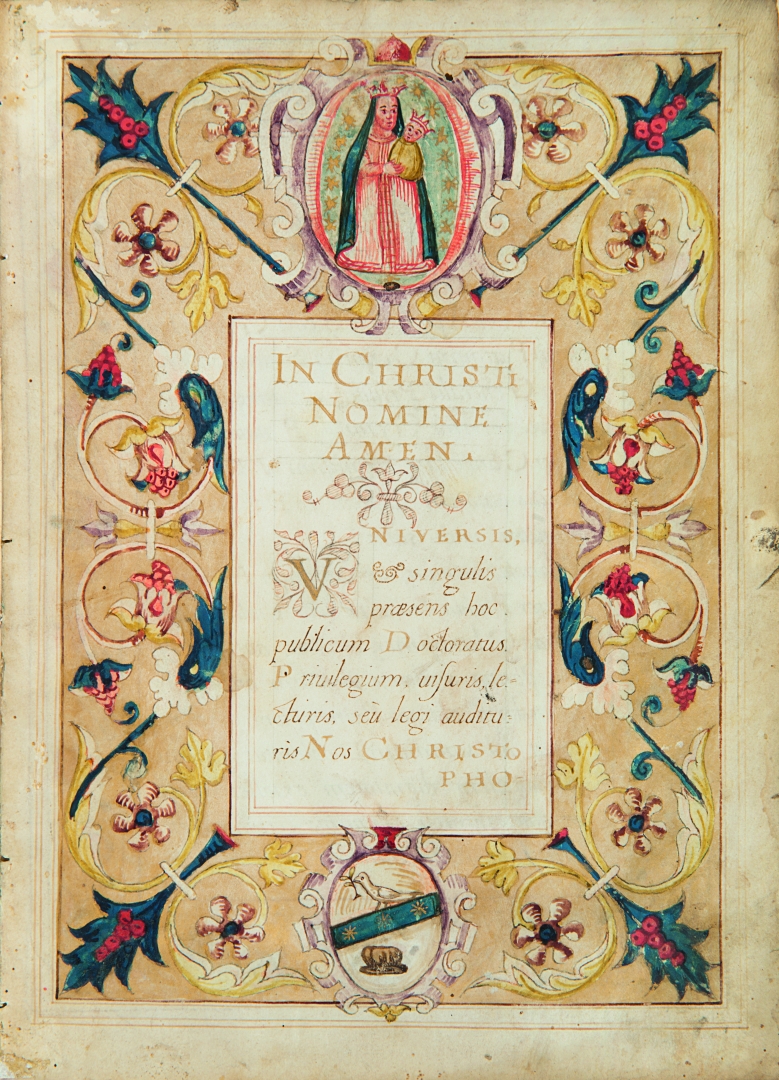 IN CHRISTI
NOMINE
AMEN.
VNIVERSIS,
& singulis
præsens hoc
publicum Doctoratus
Priuilegium, uisuris, le-
cturis, seù legi auditu-
ris Nos CHRISTO
PHO-